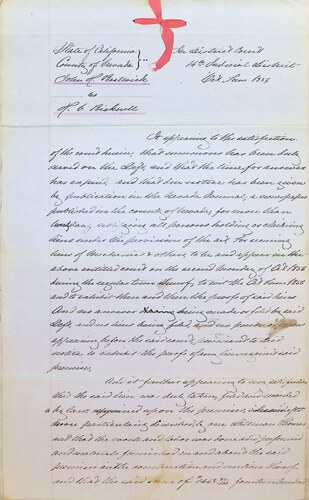 State of California } In District Court
County of Nevada } 14th Judicial District
John H. Bostwick Oct Term 1856
vs
H. C. Bicknell
It appearing to the satisfaction
of the court herein, that summons has been duly
served on the Deft, and that the time for answer
has expired, and that due notice has been given
by publication in the Nevada Journal, a newspaper
published in the county of Nevada for more than
notifying all persons holding or claiming
liens under the provisions of the act for securing
liens of Mechanics & others to be and appear in the
above entitled court on the second Monday of Oct 1856
during the regular term thereof, to wit the Oct Term 1856
and to exhibit then and there the proofs of said liens
And no answer being made or filed by said
Deft, and no liens being filed, and no person
appearing before the said court, pursuant to said
notice to exhibit the proofs of any liens against said
premises.
And it further appearing to our satisfaction
that the said lien was duly taken filed and recorded
by law, upon the premises, hereinafter
more particularly described, one
and that the work and labor was done and performed
and materials furnished on and about the said
premises in the construction and erection thereof,
and that the said sum of fourteen hundred